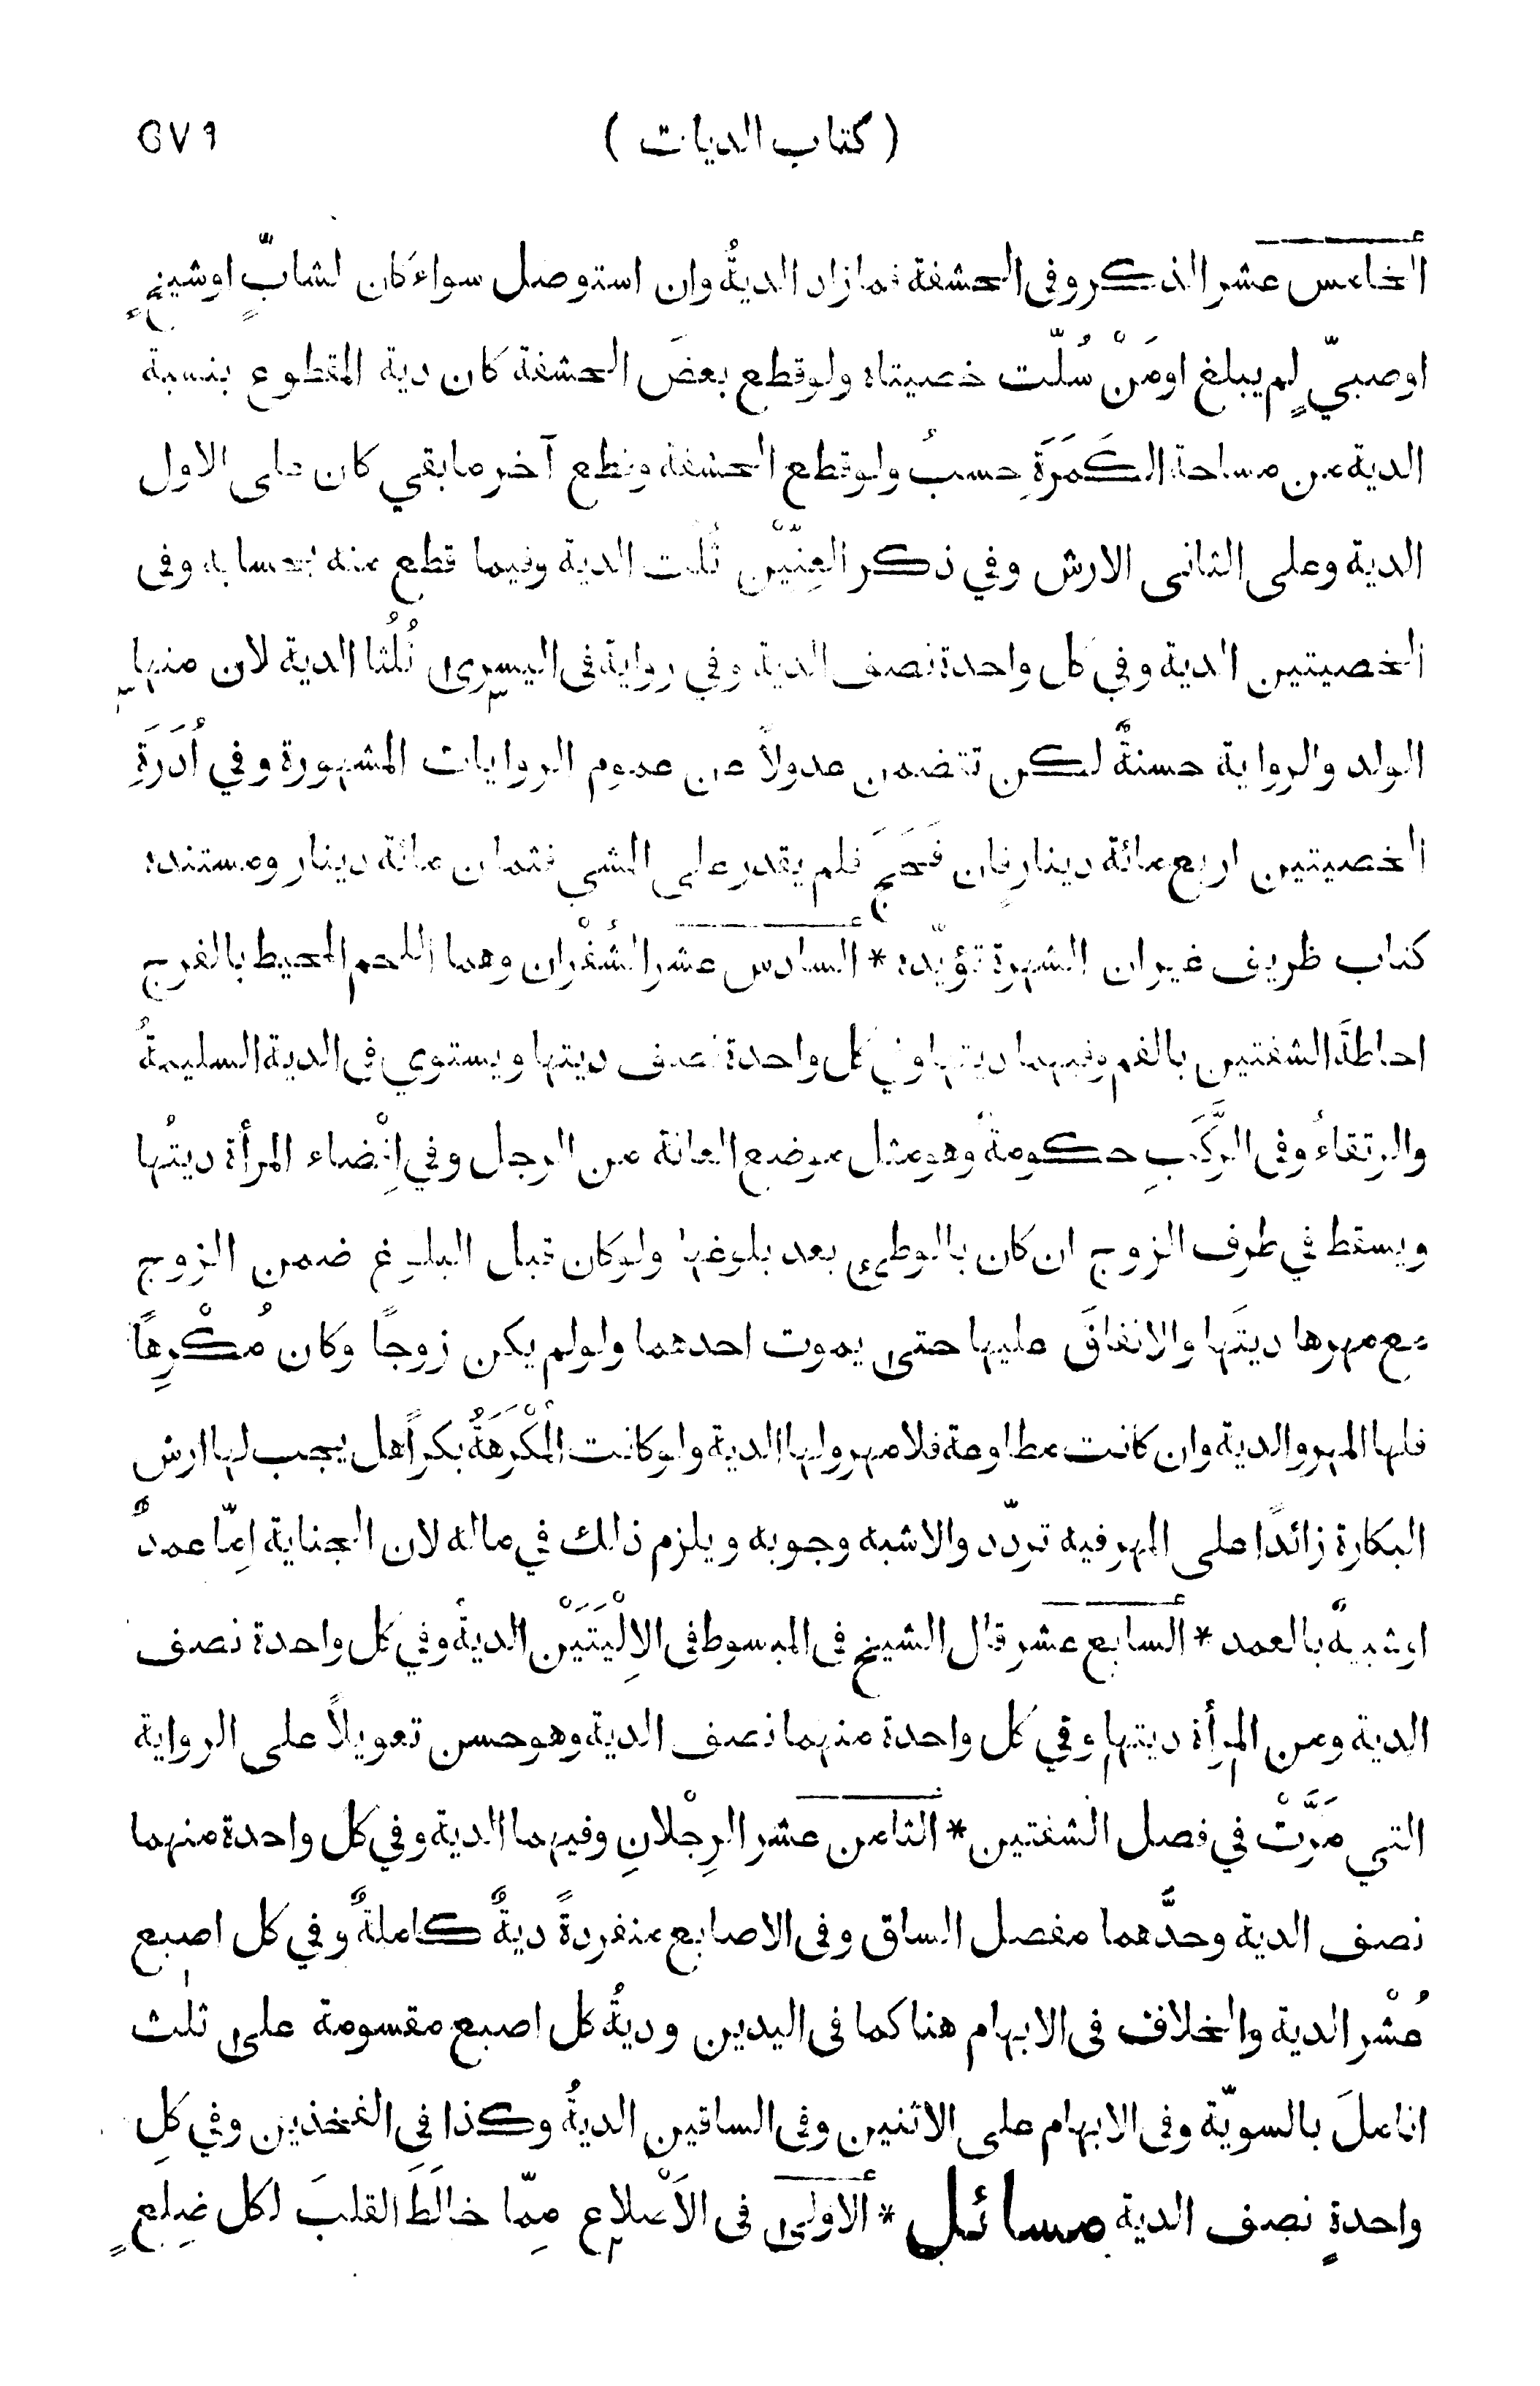 (كتاب الديات) ٥٧٩
الخامس عشر الذكر وفى الحشفة فما زاد الديةُ وان استوصل سواء كان لشابٍّ اوشيخٍ
اوصبيّ لم يبلغ اومَنْ سُلّت خصيتاه ولوقطع بعضَ الحشفة كان دية المقطوع بنسبة
الدية من مساحة الكَمَرَةِ حسبُ ولوقطع الحشفة وقطع آخر مابقي كان على الاول
الدية وعلى الثانى الارش وفي ذكر العِنّيْن ثُلث الدية وفيما قطع منه بحسابه وفى
الخصيتين الدية وفي كل واحدة نصف الدية وفي رواية فى اليسرى ثُلُثا الدية لان منها
الولد والرواية حسنةٌ لكن تتضمن عدولاً عن عموم الروايات المشهورة وفي اُدَرَةِ
الخصيتين اربع مائة دينار فان فَحَجَ فلم يقدر على المشي فثمان مائة دينار ومستنده
كتاب ظريف غيران الشهرة تؤيّده * السادس عشر الشُفْران وهما اللحم المحيط بالفرج
احاطةَ الشفتين بالفم وفيهما ديتها وفي كل واحدة نصف ديتها ويستوي في الدية السليمةُ
والرتقاءُ وفى الرَّكَبِ حكومةٌ وهو مثل موضع العانة من الرجل وفي اِفْضاء المرأة ديتُها
ويسقط في طرف الزوج ان كان بالوطىء بعد بلوغها ولوكان قبل البلوغ ضمن الزوج
مع مهرها ديتَها والانفاقَ عليها حتى يموت احدهما ولولم يكن زوجًا وكان مُكْرِهًا
فلها المهر والدية وان كانت مطاوعة فلامهر ولها الدية ولوكانت المُكْرَهَةُ بكراً هل يجب لها ارش
البكارة زائدًا على المهر فيه تردّد والاشبه وجوبه ويلزم ذلك في ماله لان الجناية اِمّا عمدٌ
اوشبيهٌ بالعمد * السابع عشر قال الشيخ فى المبسوط فى الاِلْيَتَيْن الديةُ وفي كل واحدة نصف
الدية ومن المرأة ديتها وفي كل واحدة منهما نصف الدية وهو حسن تعويلاً على الرواية
التي مَرَّتْ في فصل الشفتين * الثامن عشر الرِجْلانِ وفيهما الدية وفي كل واحدة منهما
نصف الدية وحدَّهما مفصل الساق وفى الاصابع منفردةً ديةٌ كاملةٌ وفي كل اصبع
عُشْر الدية والخلاف فى الابهام هنا كما فى اليدين وديةُ كل اصبع مقسومة على ثلٰث
اناملَ بالسويّة وفى الابهام على الاثنين وفى الساقين الديةُ وكذا فِي الفخذين وفي كلِ
واحدةٍ نصف الدية مسائل * الاولى فى الاَضْلاع مِمّا خالَطَ القلبَ لكل ضِلعٍ